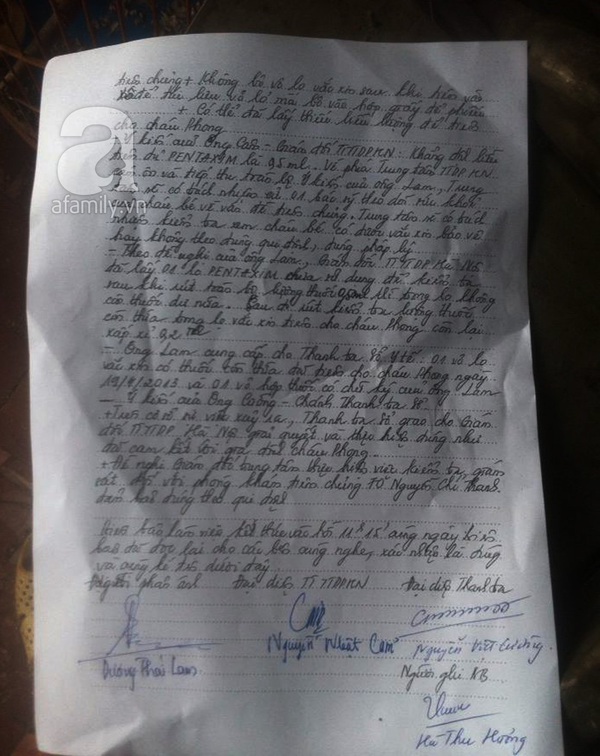 tiêm chủng + Không bỏ vỏ lọ vắc xin sau khi tiêm vào
vỏ lọ mà bỏ vào hộp giấy để
+ Có thể đã lấy thiếu liều lượng để tiêm
cho cháu Phong
ý kiến của Ông Cảm - Giám đốc TTYTDP HN: Khẳng định liều
tiêm đủ PENTAXIM là 0,5 ml. Về phía Trung tâm YTDP HN
và tiếp thu toàn bộ ý kiến của ông Lam, Trung
tâm sẽ có trách nhiệm cử 01 bác sỹ theo dõi sức khỏe
cháu bé về vấn đề tiêm chủng. Trung tâm sẽ có trách
nhiệm kiểm tra xem cháu bé có được vắc xin bảo vệ
hay không theo đúng qui định, đúng pháp lý.
- Theo đề nghị của ông Lam, Giám đốc TTYTDP Hà Nội
đã lấy 01 lọ PENTAXIM chưa sử dụng để kiểm tra
sau khi rút toàn bộ lượng thuốc thì trong lọ không
còn thuốc dư nữa. Sau đó rút kiểm tra lượng thuốc
còn thừa trong lọ vắc xin tiêm cho cháu Phong còn lại
xấp xỉ 0,2 ml
- Ông Lam cung cấp cho Thanh tra Sở Y tế: 01 vỏ lọ
vắc xin có thuốc còn thừa đã tiêm cho cháu Phong ngày
19/8/2013 và 01 vỏ hộp thuốc có chữ ký của ông Lam
- Ý kiến của Ông Cường - Chánh Thanh tra Sở
vụ việc xảy ra, Thanh tra Sở giao cho Giám
đốc TTYTDP Hà Nội giải quyết và thực hiện đúng như
đã cam kết với gia đình cháu Phong
+ Đề nghị Giám đốc trung tâm thực hiện việc kiểm tra, giám
sát đối với phòng khám tiêm chủng 70 Nguyễn Chí Thanh
đảm bảo đúng theo qui định
Biên bản làm việc kết thúc vào hồi 11h15' cùng ngày, biên
bản đã đọc lại cho các bên cùng nghe, xác nhận là đúng
và cùng ký tên dưới đây
Người phản ánh Đại diện TTYTDP HN Đại diện Thanh tra
Nguyễn Nhật Cảm Nguyễn Việt Cường
Dương Thái Lam Người ghi BB
Hà Thu Hương
a
afamily.vn